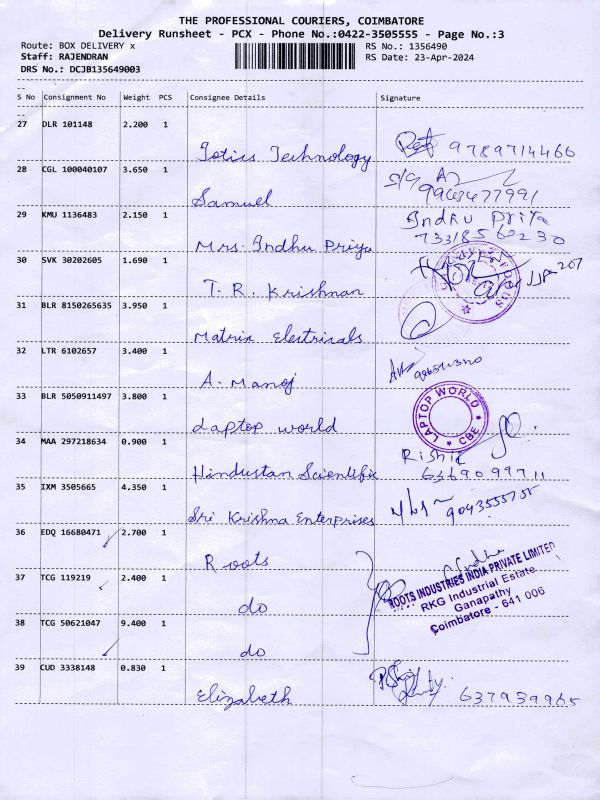 THE PROFESSIONAL COURIERS, COIMBATORE
Delivery Runsheet - PCX - Phone No.:0422-3505555 - Page No.:3
Route: BOX DELIVERY x RS No.: 1356490
Staff: RAJENDRAN RS Date: 23-Apr-2024
DRS No.: DCJB135649003
S No Consignment No Weight PCS Consignee Details Signature
27 DLR 101148 2.200 1
Technology 9789714466
28 CGL 100040107 3.650 1
Samuel
29 KMU 1136483 2.150 1 Indhu Priya
Mrs. Indhu Priya
30 SVK 30202605 1.690 1
T. R. Krishnan
31 BLR 8150265635 3.950 1
Matrix Electricals
32 LTR 6102657 3.400 1
A. Manoj
33 BLR 5050911497 3.800 1
Laptop world LAPTOP WORLD CBE
34 MAA 297218634 0.900 1
Hindustan Scientific
35 IXM 3505665 4.350 1
Sri Krishna Enterprises
36 EDQ 16680471 2.700 1
Roots
37 TCG 119219 2.400 1 ROOTS INDUSTRIES INDIA PRIVATE LIMITED
do RKG Industrial Estate
Ganapathy
38 TCG 50621047 9.400 1 Coimbatore - 641 006
do
39 CUD 3338148 0.830 1
Elizabeth 637939965